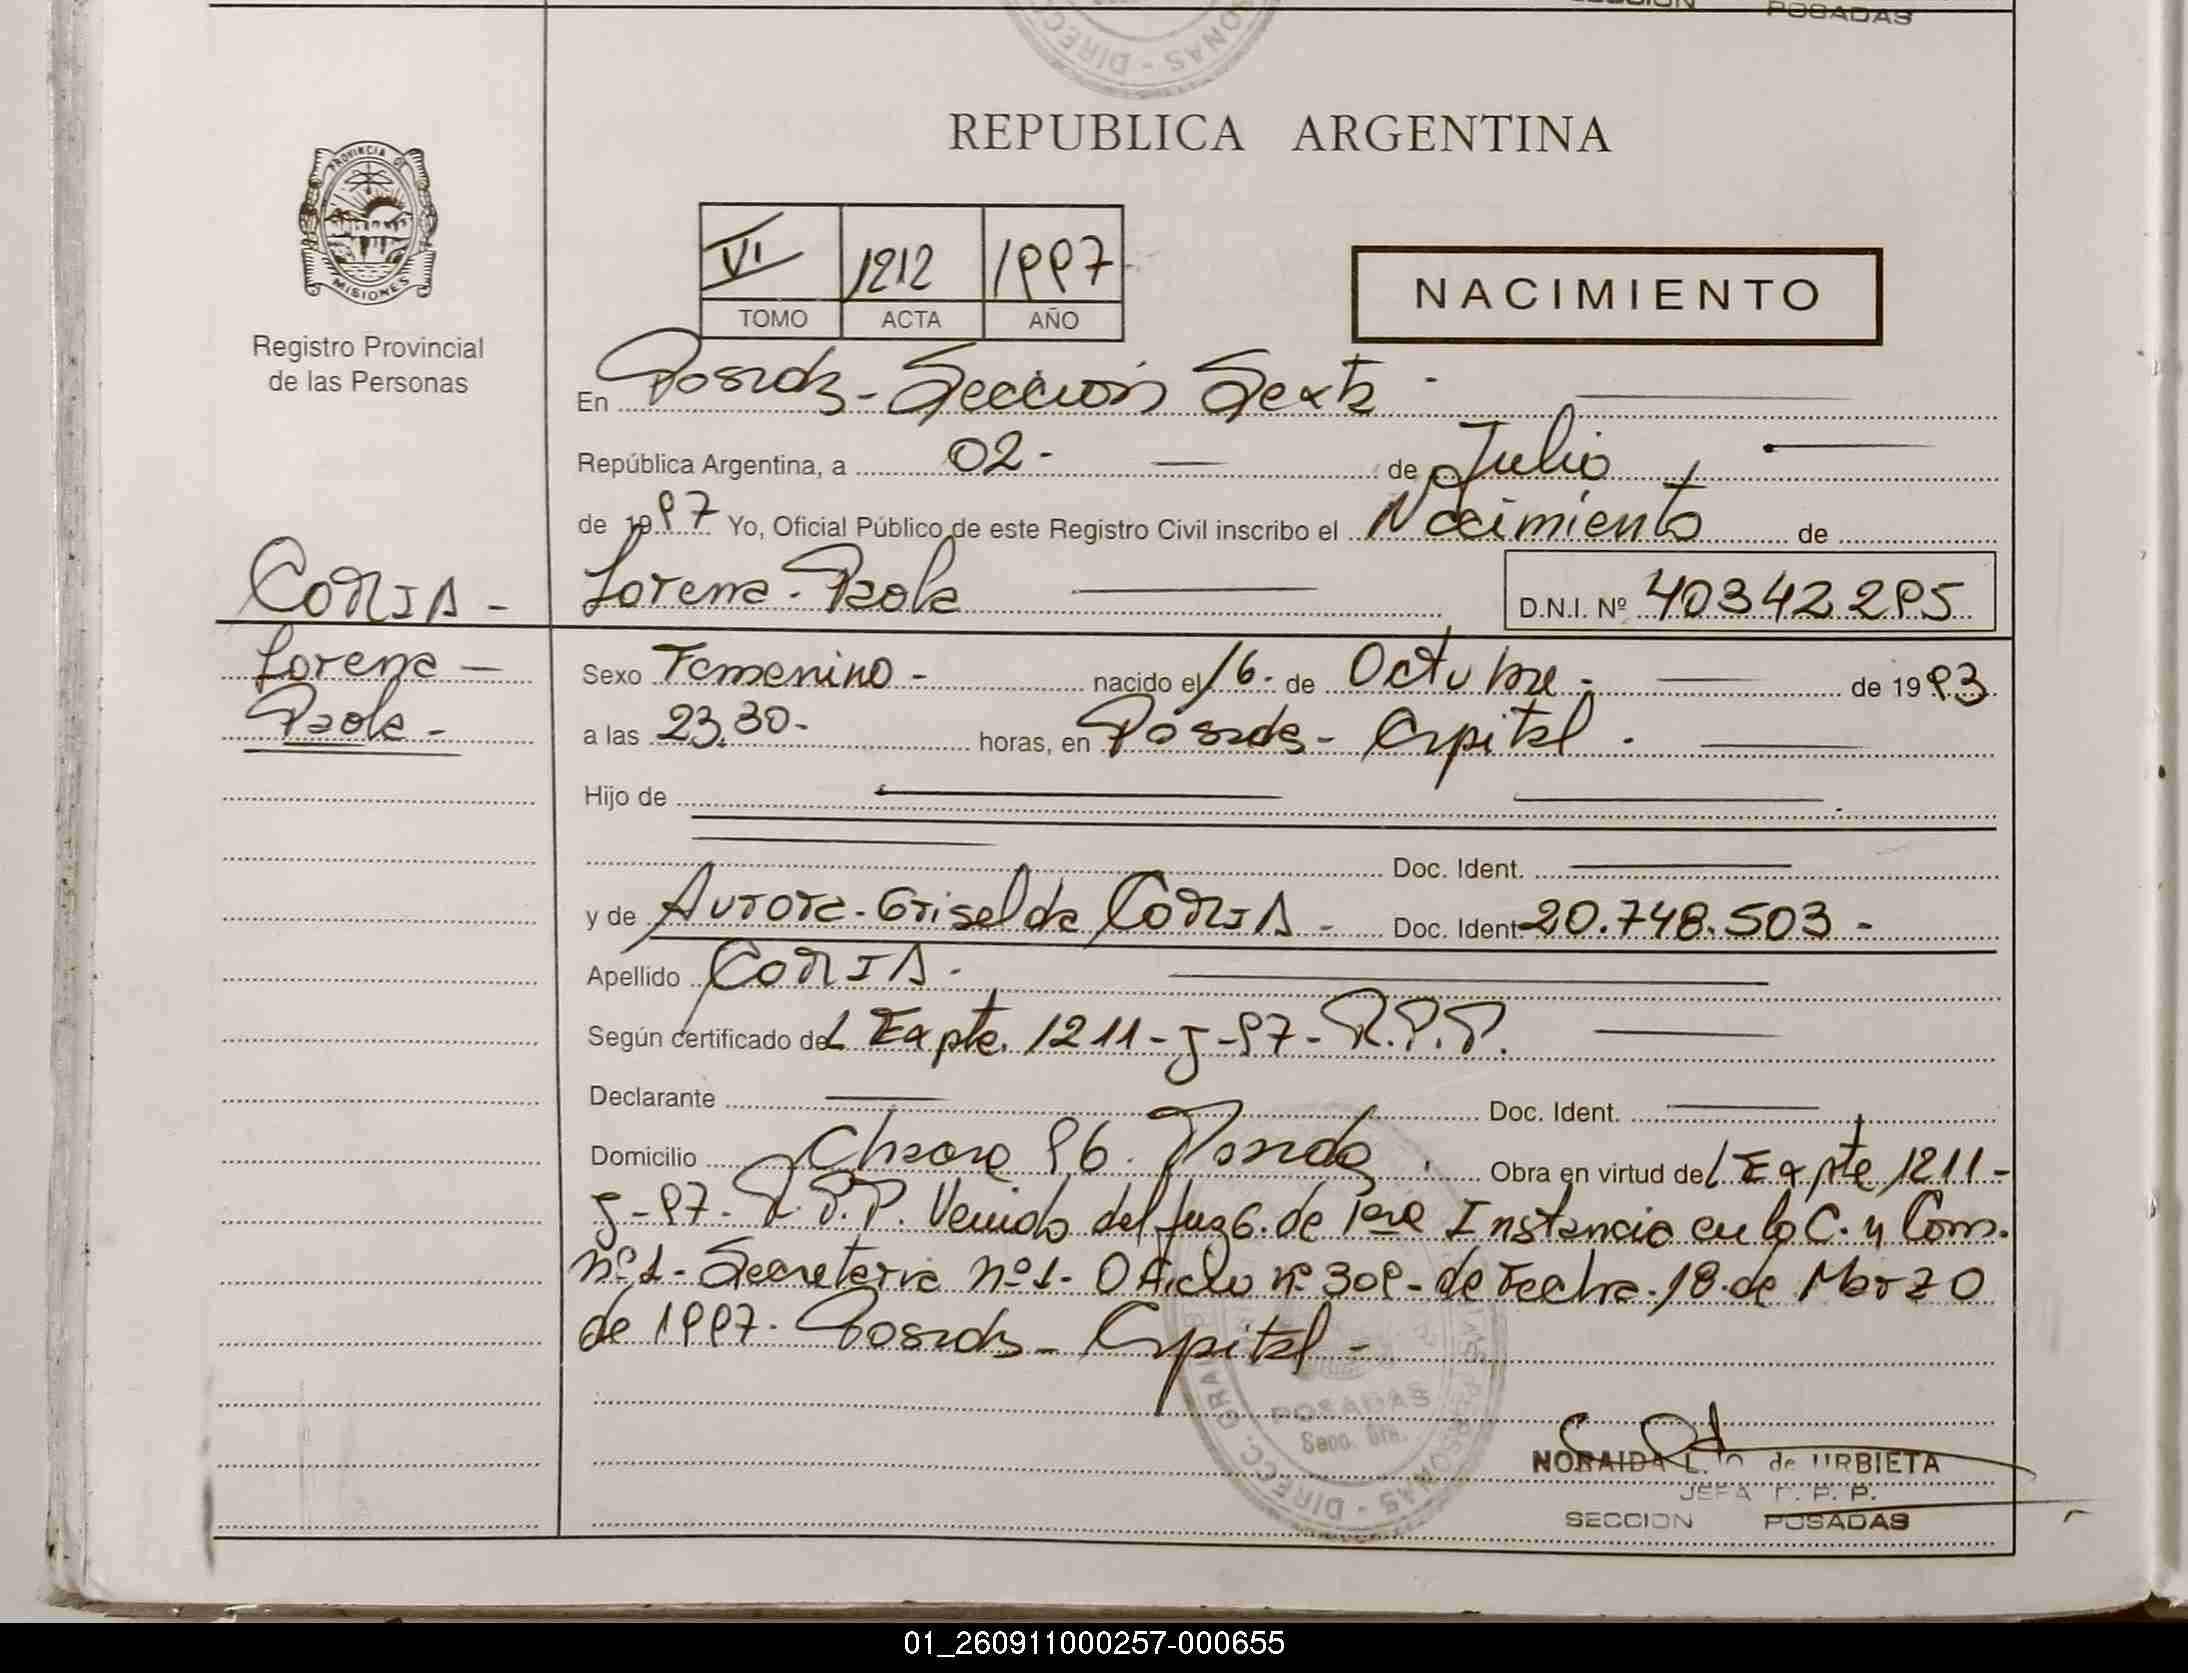 SECCION POSADAS
REPUBLICA ARGENTINA
PROVINCIA DE
MISIONES
Registro Provincial
de las Personas
VI 1212 1997
TOMO ACTA AÑO
NACIMIENTO
En Posadas - Sección Sexta -
República Argentina, a 02 - de Julio
de 1997 Yo, Oficial Público de este Registro Civil inscribo el Nacimiento de
CORIA -
Lorena - Paola D.N.I. Nº 40342295
Lorena -
Paola -
Sexo Femenino - nacido el 16 - de Octubre - de 1993
a las 23,30 - horas, en Posadas - Capital -
Hijo de
Doc. Ident.
y de Aurora - Griselda CORIA - Doc. Ident. 20.748.503 -
Apellido CORIA -
Según certificado del Expte. 1211 - J - 97 - R.P.P.
Declarante Doc. Ident.
Domicilio Chacra 96. Posadas. Obra en virtud del Expte 1211 -
J - 97 - R.P.P. Venido del Juzg. de 1era Instancia en lo C. y Com.
nº 1 - Secretaria nº 1 - Oficio nº 309 - de Fecha - 18 - de Marzo
de 1997 - Posadas - Capital -
POSADAS
Secc. 6ta.
NORAIDA L. de URBIETA
JEFA R. P. P.
SECCION POSADAS
01_260911000257-000655